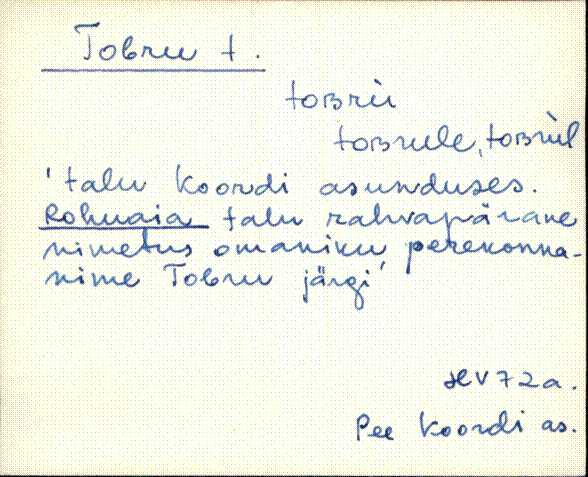 Tobru t.
toʙrù
toʙrule, toʙrùl
'talu Koordi asunduses.
Rohuaia talu rahvapärane
nimetus omaniku perekonna-
nime Tobru järgi'
HV 72a.
Pee Koordi as.